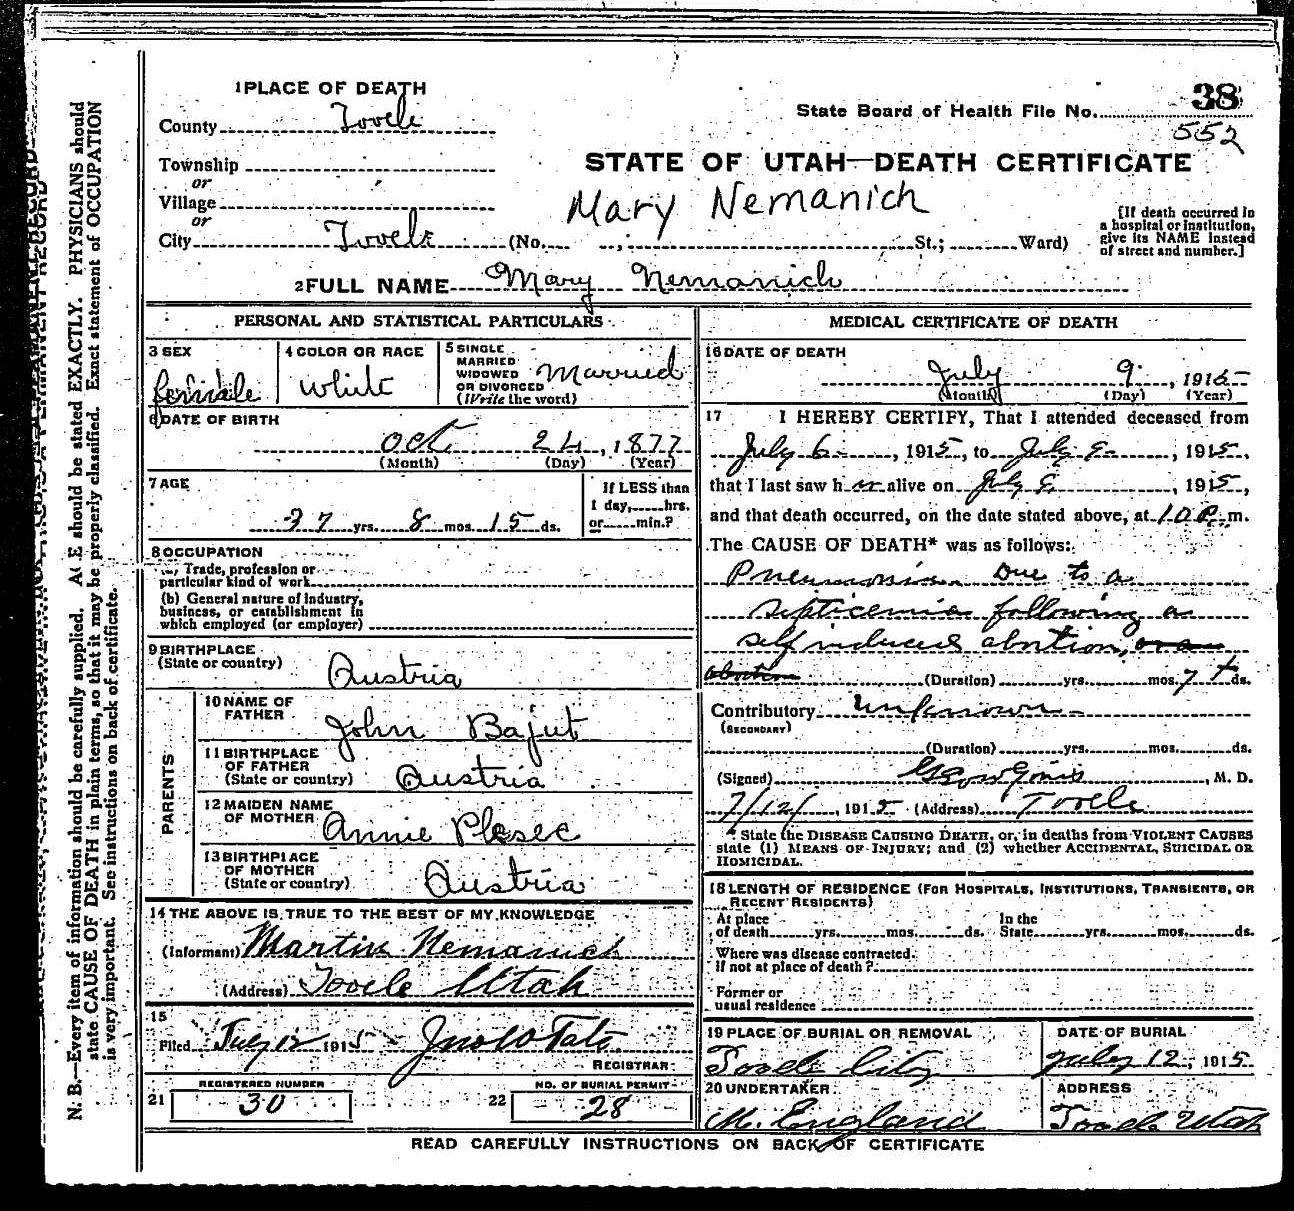 1 PLACE OF DEATH
County Tooele
38
State Board of Health File No.
552
Township
or
Village
or
City Tooele (No. , St.; Ward)
STATE OF UTAH—DEATH CERTIFICATE
Mary Nemanich
[If death occurred in
a hospital or institution,
give its NAME instead
of street and number.]
2 FULL NAME Mary Nemanich
PERSONAL AND STATISTICAL PARTICULARS
3 SEX
female
4 COLOR OR RACE
White
5 SINGLE
MARRIED
WIDOWED
OR DIVORCED
(Write the word)
Married
6 DATE OF BIRTH
Oct 24, 1877
(Month) (Day) (Year)
7 AGE
37 yrs. 8 mos. 15 ds.
If LESS than
1 day, hrs.
or min.?
8 OCCUPATION
Trade, profession or
particular kind of work
(b) General nature of industry,
business, or establishment in
which employed (or employer)
9 BIRTHPLACE
(State or country)
Austria
PARENTS
10 NAME OF
FATHER
John Bajut
11 BIRTHPLACE
OF FATHER
(State or country)
Austria
12 MAIDEN NAME
OF MOTHER
Annie Plesec
13 BIRTHPLACE
OF MOTHER
(State or country)
Austria
14 THE ABOVE IS TRUE TO THE BEST OF MY KNOWLEDGE
(Informant) Martin Nemanich
(Address) Tooele Utah
15
Filed July 12 1915 Jno W Tate
REGISTRAR
21 REGISTERED NUMBER
30
22 NO. OF BURIAL PERMIT
28
MEDICAL CERTIFICATE OF DEATH
16 DATE OF DEATH
July 9, 1915
(Month) (Day) (Year)
17 I HEREBY CERTIFY, That I attended deceased from
July 6, 1915, to July 9, 1915,
that I last saw her alive on July 9, 1915,
and that death occurred, on the date stated above, at 10 P. m.
The CAUSE OF DEATH* was as follows:
Pneumonia Due to a
septicemia following a
self induced abortion, or an
abortion (Duration) yrs. mos. 7 ds.
Contributory Unknown
(SECONDARY)
(Duration) yrs. mos. ds.
(Signed) , M. D.
7/12/, 1915 (Address) Tooele
* State the DISEASE CAUSING DEATH, or, in deaths from VIOLENT CAUSES
state (1) MEANS OF INJURY; and (2) whether ACCIDENTAL, SUICIDAL OR
HOMICIDAL.
18 LENGTH OF RESIDENCE (FOR HOSPITALS, INSTITUTIONS, TRANSIENTS, OR
RECENT RESIDENTS)
At place
of death yrs. mos. ds.
In the
State yrs. mos. ds.
Where was disease contracted.
if not at place of death?
Former or
usual residence
19 PLACE OF BURIAL OR REMOVAL
Tooele City
DATE OF BURIAL
July 12, 1915
20 UNDERTAKER
M. England
ADDRESS
Tooele Utah
READ CAREFULLY INSTRUCTIONS ON BACK OF CERTIFICATE
N. B.—Every item of information should be carefully supplied. AGE should be stated EXACTLY. PHYSICIANS should
state CAUSE OF DEATH in plain terms, so that it may be properly classified. Exact statement of OCCUPATION
is very important. See instructions on back of certificate.